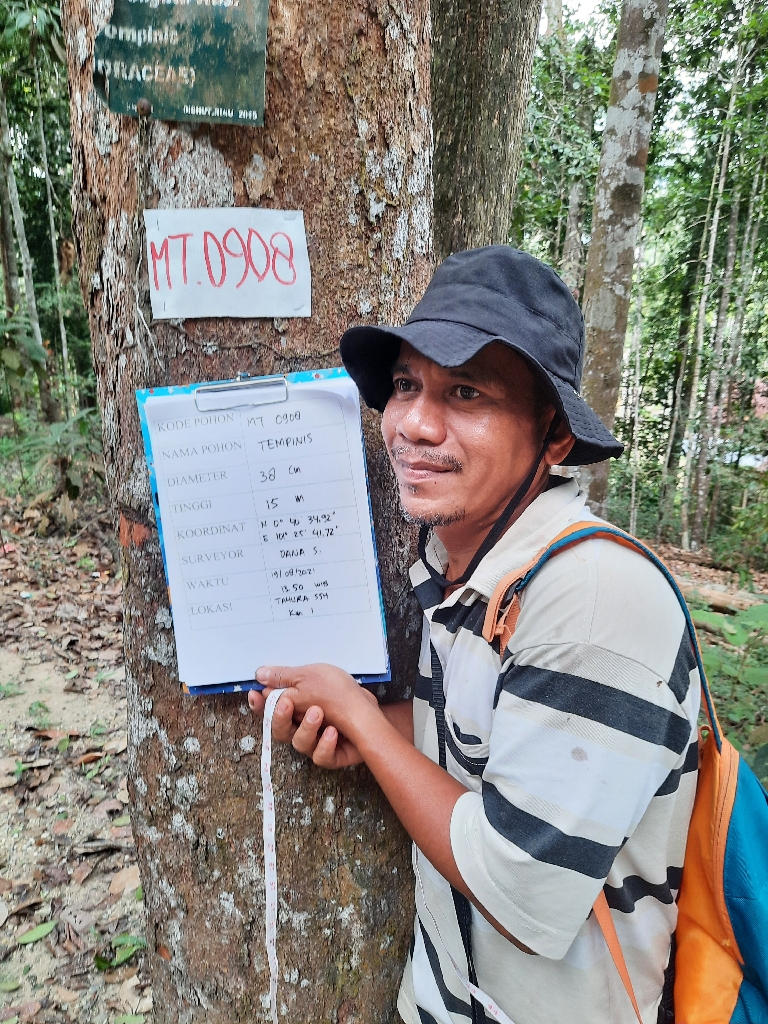 ompinis
RACEAE)
DISHUT.RIAU 2015
MT.0908
KODE POHON MT 0908
NAMA POHON TEMPINIS
DIAMETER 38 Cm
TINGGI 15 m
KOORDINAT N 0° 40' 34.92"
E 101° 25' 41.72"
SURVEYOR DANA S.
WAKTU 19/08/2021
13.50 WIB
LOKASI TAHURA SSH